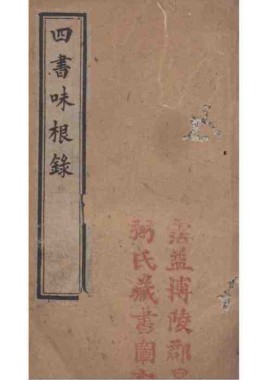 四書味根錄
博陵郡
氏藏書